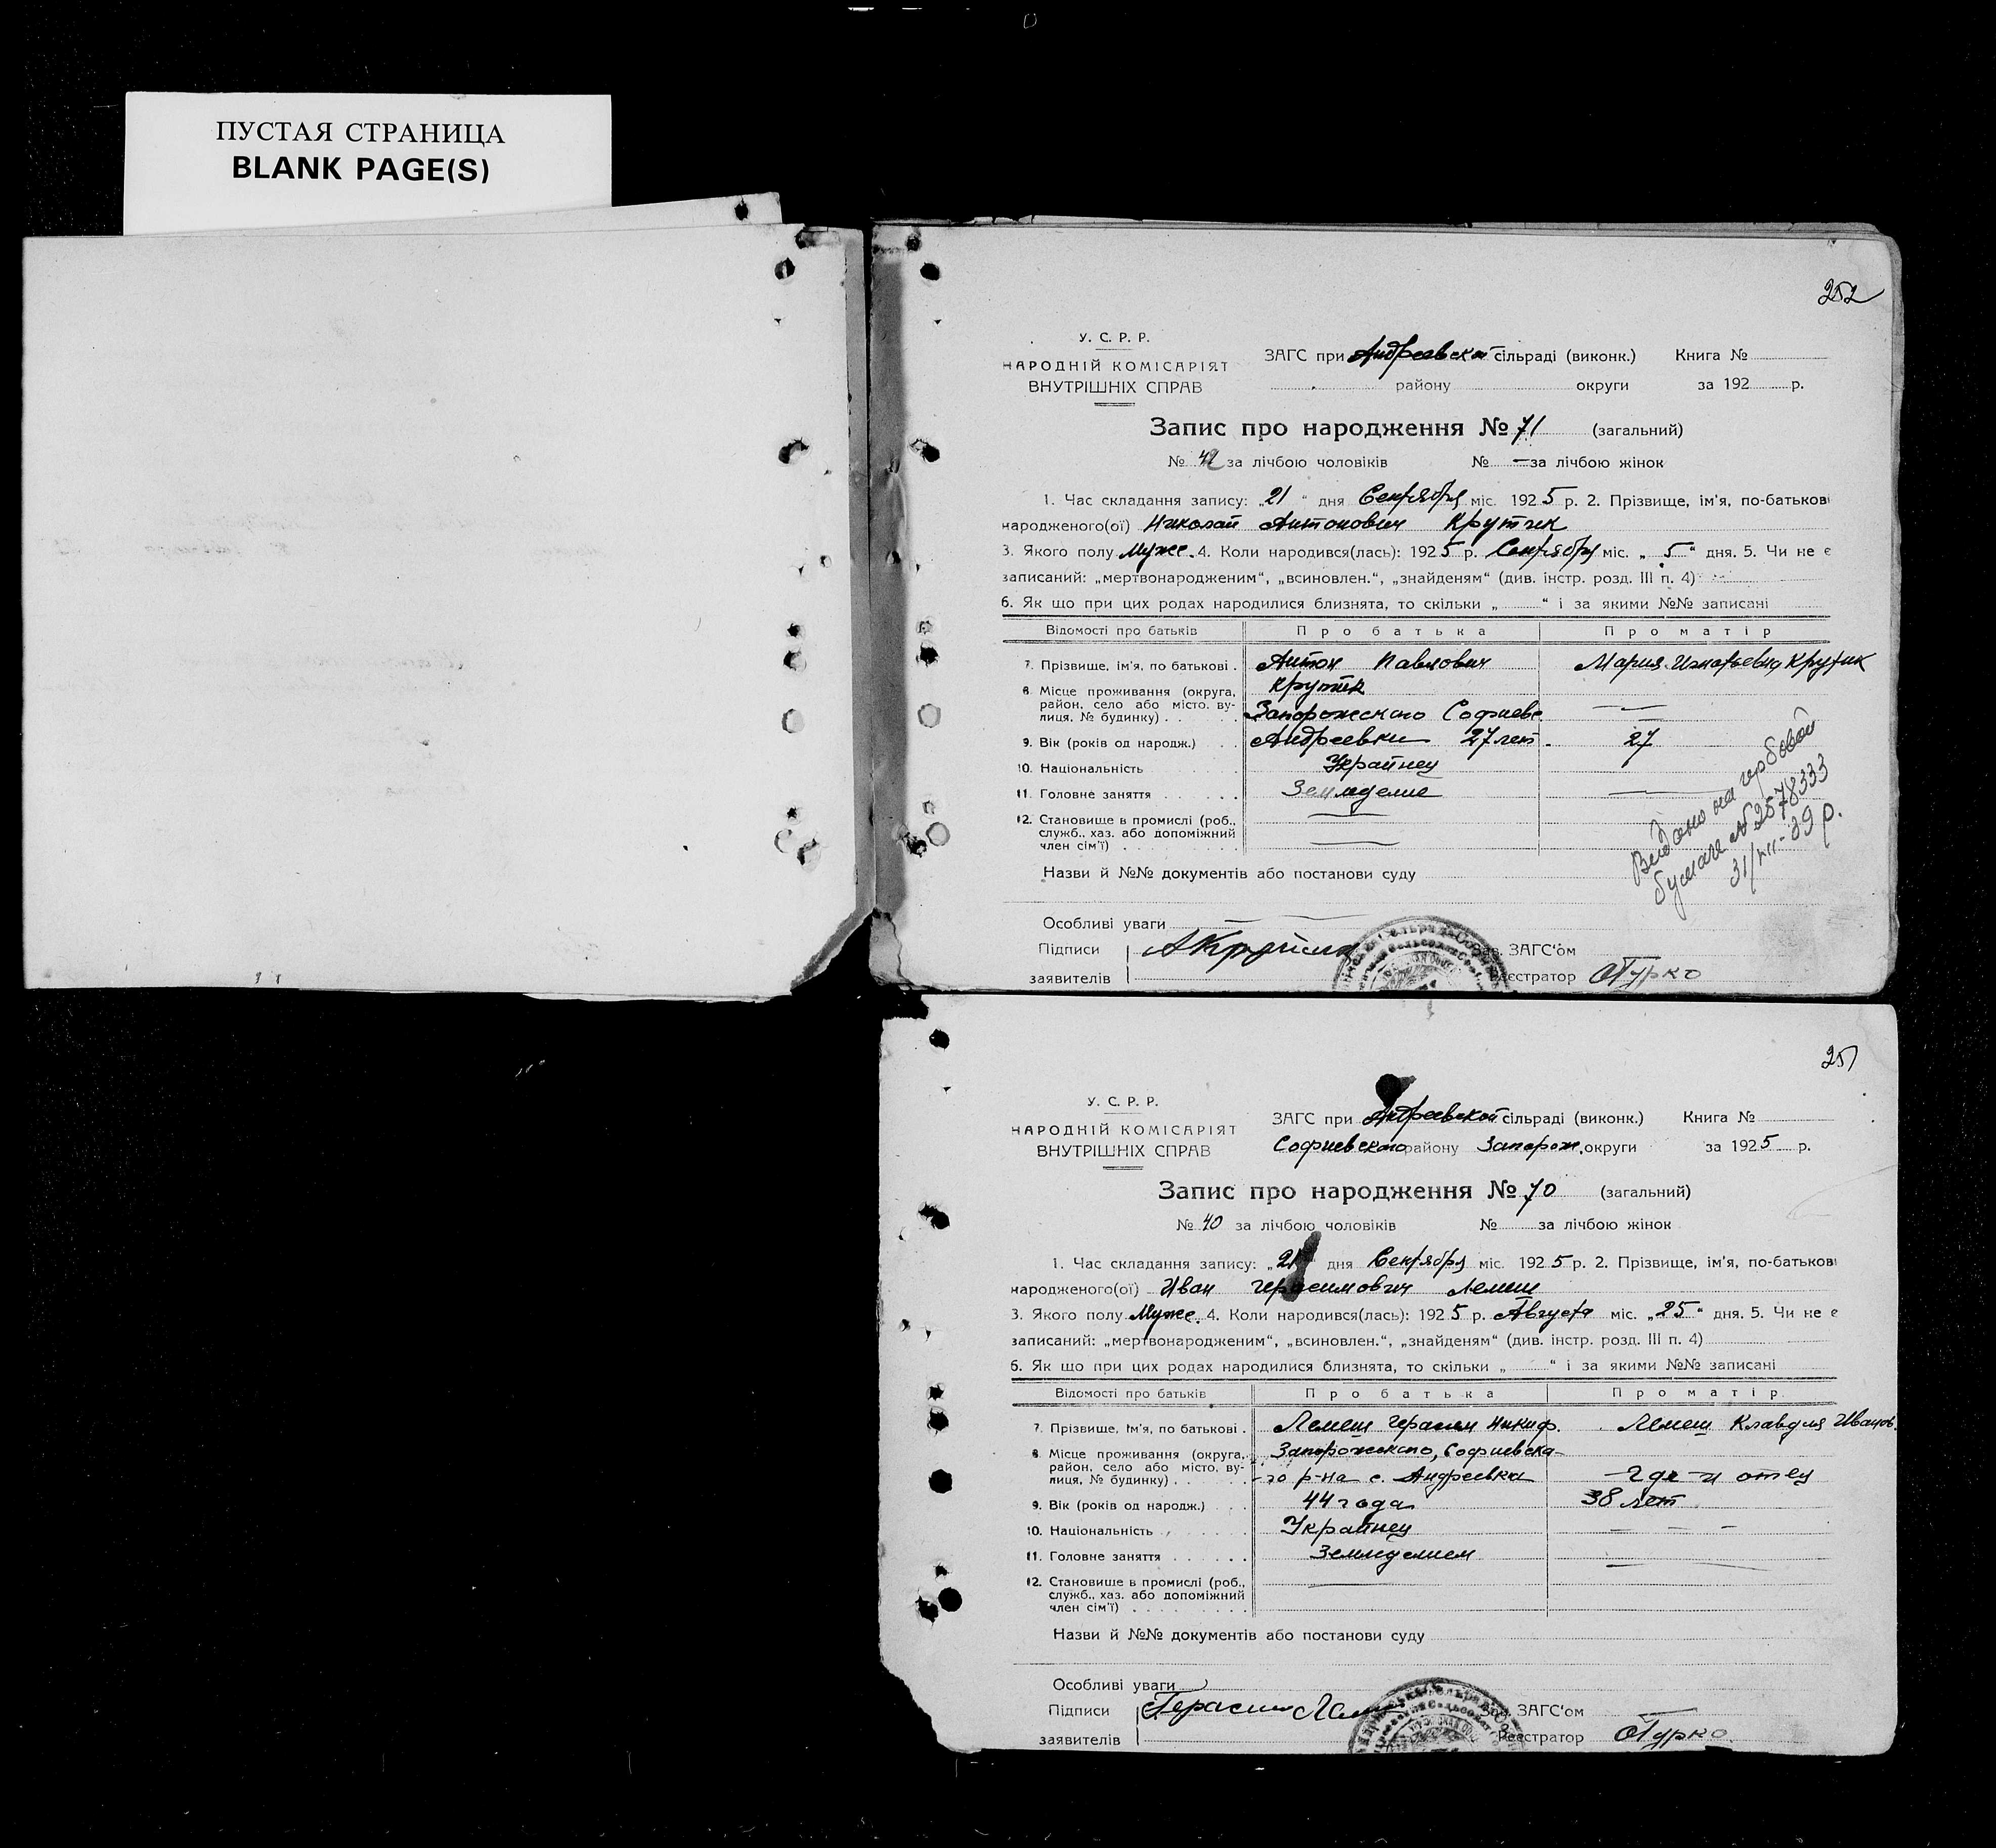 ПУСТАЯ СТРАНИЦА
BLANK PAGE(S)
252
У. С. Р. Р.
НАРОДНІЙ КОМІСАРІЯТ
ВНУТРІШНІХ СПРАВ
ЗАГС при Андреевской сільраді (виконк.) Книга №
району округи за 192 р.
Запис про народження № 71 (загальний)
№ 42 за лічбою чоловіків № — за лічбою жінок
1. Час складання запису: „21" дня Сентября міс. 1925 р. 2. Прізвище, ім'я, по-батькові
народженого(ої) Николай Антонович Крутик
3. Якого полу Муже. 4. Коли народився(лась): 1925 р. Сентября міс. „5" дня. 5. Чи не є
записаний: „мертвонародженим", „всиновлен.", „знайденям" (див. інстр. розд. III п. 4)
6. Як що при цих родах народилися близнята, то скільки „ " і за якими №№ записані
Відомості про батьків Про батька Про матір
7. Прізвище, ім'я, по батькові . Антон Павлович Мария Игнатьевна Крутик
Крутик
8 Місце проживання (округа, район, село або місто, вулиця, № будинку) . . Запорожского Софиевс —
9. Вік (років од народж.) . . Андреевки 27 лет. 27
10. Національність Украйнец
11. Головне заняття Земледелие —
12. Становище в промислі (роб., служб., хаз. або допоміжний член сім'ї) —
Видано на гербовой
бумаге № 2578333
31/VII-39 р.
Назви й №№ документів або постанови суду
Особливі уваги
Підписи
заявителів
ЗАГС'ом
Реєстратор Турко
251
У. С. Р. Р.
НАРОДНІЙ КОМІСАРІЯТ
ВНУТРІШНІХ СПРАВ
ЗАГС при Андреевской сільраді (виконк.) Книга №
Софиевского району Запорож. округи за 1925 р.
Запис про народження № 70 (загальний)
№ 40 за лічбою чоловіків № за лічбою жінок
1. Час складання запису: „21" дня Сентября міс. 1925 р. 2. Прізвище, ім'я, по-батькові
народженого(ої) Иван Герасимович Лемеш
3. Якого полу Муже. 4. Коли народився(лась): 1925 р. Августа міс. „25" дня. 5. Чи не є
записаний: „мертвонародженим", „всиновлен.", „знайденям" (див. інстр. розд. III п. 4)
6. Як що при цих родах народилися близнята, то скільки „ " і за якими №№ записані
Відомості про батьків Про батька Про матір
7. Прізвище, ім'я, по батькові . Лемеш Герасим Никиф. Лемеш Клавдия Иванов.
8 Місце проживання (округа, район, село або місто, вулиця, № будинку) . . Запорожского, Софиевска-
го р-на с. Андреевки — где и отец
9. Вік (років од народж.) . . 44 года 38 лет
10. Національність Украйнец — — —
11. Головне заняття Земледелием —
12. Становище в промислі (роб., служб., хаз. або допоміжний член сім'ї) —
Назви й №№ документів або постанови суду
Особливі уваги
Підписи Герасим
заявителів
ЗАГС'ом
Реєстратор Турко